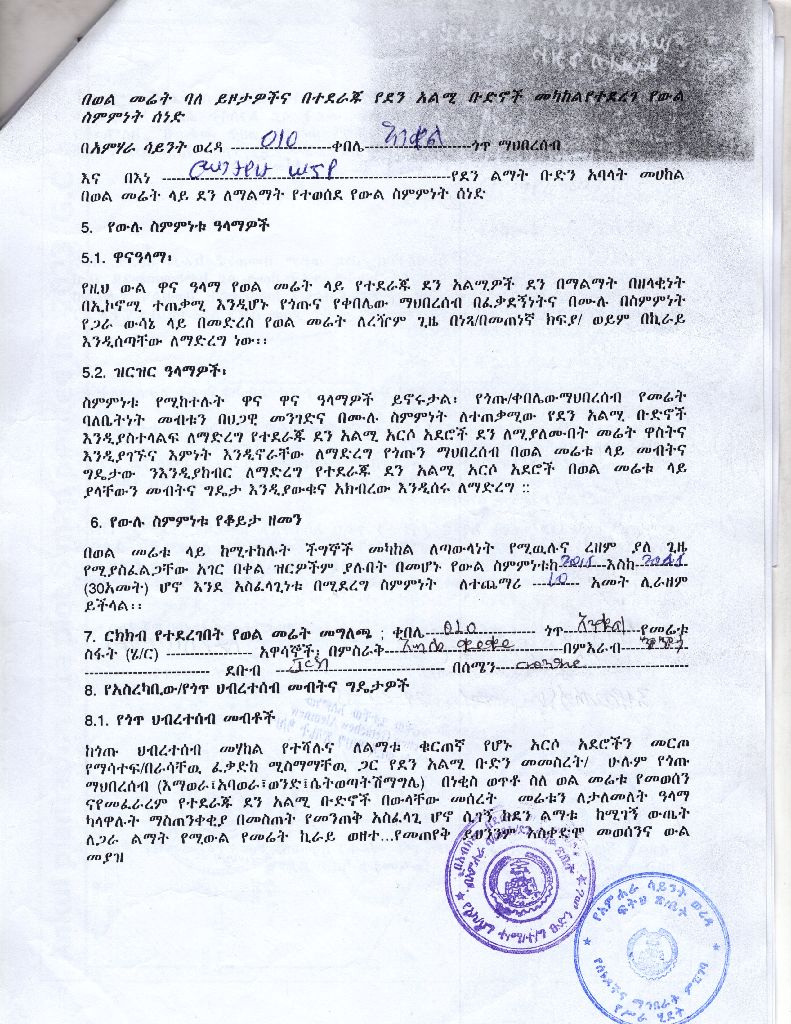 በወል መሬት ባለ ይዞታዎችና በተደራጁ የደን አልሚ ቡድኖች መካከልየተደረገ የውል
ስምምነት ሰነድ
በአምሃራ ሳይንት ወረዳ ----------010----------ቀበሌ--------------------ጎጥ ማህበረሰብ
እና በእነ ----------------------------------------የደን ልማት ቡድን አባላት መሀከል
በወል መሬት ላይ ደን ለማልማት የተወሰደ የውል ስምምነት ሰነድ
5. የውሉ ስምምነቱ ዓላማዎች
5.1. ዋናዓላማ፡
የዚህ ውል ዋና ዓላማ የወል መሬት ላይ የተደራጁ ደን አልሚዎች ደን በማልማት በዘላቂነት
በኢኮኖሚ ተጠቃሚ እንዲሆኑ የጎጡና የቀበሌው ማህበረሰብ በፈቃደኝነትና በሙሉ በስምምነት
የጋራ ውሳኔ ላይ በመድረስ የወል መሬት ለረዥም ጊዜ በነጻ/በመጠነኛ ክፍያ/ ወይም በኪራይ
እንዲሰጣቸው ለማድረግ ነው፡፡
5.2. ዝርዝር ዓላማዎች፡
ስምምነቱ የሚከተሉት ዋና ዋና ዓላማዎች ይኖሩታል፡ የጎጡ/ቀበሌውማህበረሰብ የመሬት
ባለቤትነት መብቱን በህጋዊ መንገድና በሙሉ ስምምነት ለተጠቃሚው የደን አልሚ ቡድኖች
እንዲያስተላልፍ ለማድረግ የተደራጁ ደን አልሚ አርሶ አደሮች ደን ለሚያለሙበት መሬት ዋስትና
እንዲያገኙና እምነት እንዲኖራቸው ለማድረግ የጎጡን ማህበረሰብ በወል መሬቱ ላይ መብትና
ግዴታው ንእንዲያከብር ለማድረግ የተደራጁ ደን አልሚ አርሶ አደሮች በወል መሬቱ ላይ
ያላቸውን መብትና ግዴታ እንዲያውቁና አክብረው እንዲሰሩ ለማድረግ ::
6. የውሉ ስምምነቱ የቆይታ ዘመን
በወል መሬቱ ላይ ከሚተከሉት ችግኞች መካከል ለጣውላነት የሚዉሉና ረዘም ያለ ጊዜ
የሚያስፈልጋቸው አገር በቀል ዝርዎችም ያሉበት በመሆኑ የውል ስምምነቱከ--------እስከ--------
(30አመት) ሆኖ እንደ አስፈላጊነቱ በሚደረግ ስምምነት ለተጨማሪ ---10--- አመት ሊራዘም
ይችላል፡፡
7. ርክክብ የተደረገበት የወል መሬት መግለጫ ; ቀበሌ---010--- ጎጥ --------የመሬቱ
ስፋት (ሄ/ር) ---------------- አዋሳኞች፡ በምስራቅ----------------በምእራብ--------
------------------------ ደቡብ ---------------- በሰሜን----------------
8. የአስረካቢው/የጎጥ ህብረተሰብ መብትና ግዴታዎች
8.1. የጎጥ ህብረተሰብ መብቶች
ከጎጡ ህብረተሰብ መሃከል የተሻሉና ለልማቱ ቁርጠኛ የሆኑ አርሶ አደሮችን መርጦ
የማሳተፍ/በራሳቸዉ ፈቃድከ ሚስማማቸዉ ጋር የደን አልሚ ቡድን መመስረት/ ሁሉም የጎጡ
ማህበረሰብ (እማወራ፤አባወራ፤ወንድ፤ሴትወጣትሽማግሌ) በነቂስ ወጥቶ ስለ ወል መሬቱ የመወሰን
ናየመፈራረም የተደራጁ ደን አልሚ ቡድኖች በውላቸው መሰረት መሬቱን ለታለመለት ዓላማ
ካላዋሉት ማስጠንቀቂያ በመስጠት የመንጠቅ አስፈላጊ ሆኖ ሲገኝ ከደን ልማቱ ከሚገኝ ውጤት
ለጋራ ልማት የሚውል የመሬት ኪራይ ወዘተ...የመጠየቅ ይህንንም አስቀድሞ መወሰንና ውል
መያዝ
የአምሐራ ሳይንት ወረዳ
ፍትህ ጽ/ቤት